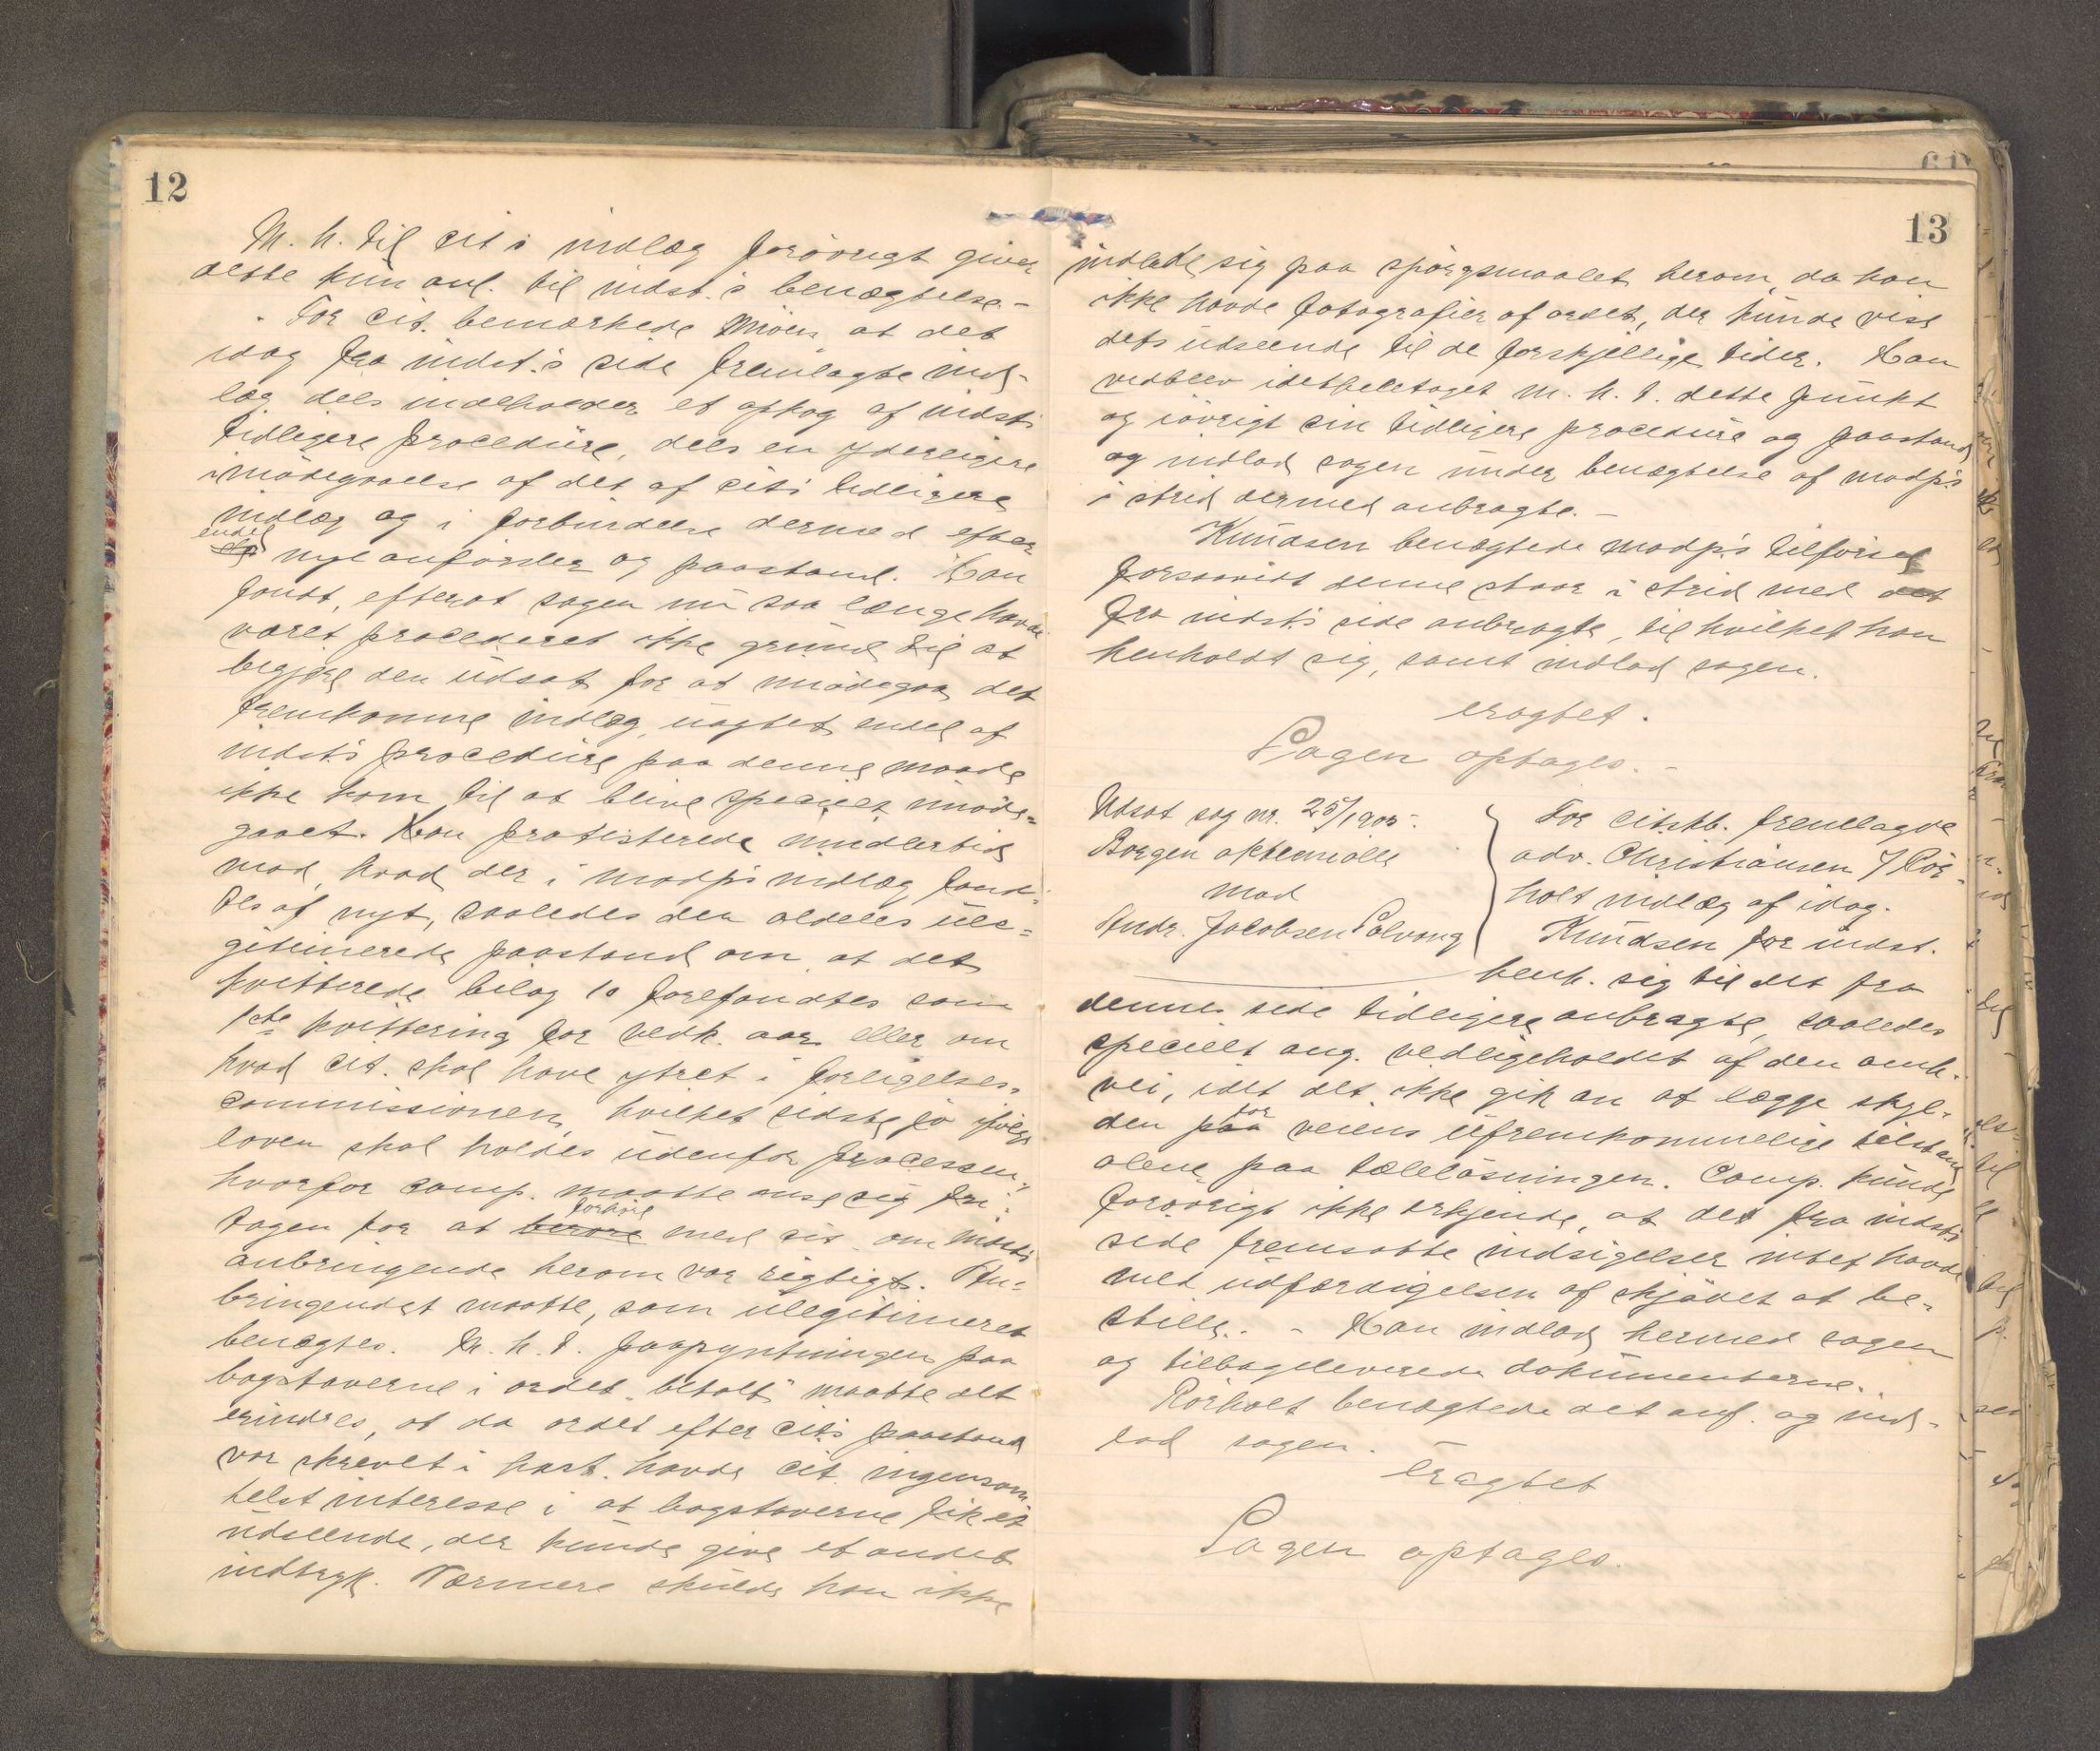 12
M. h. til cit.s indlæg forøvrigt giver
dette kun anl. til indst.s benægtelse. –
For cit. bemærkede Moen at det
idag fra indst.s side fremlagte ind-
læg dels indeholder et opkog af indst.s
tidligere procedure, dels en yderligere
imødegaaelse af det af cit.s tidligere
indlæg og i forbindelse dermed efter
endel nye anførsler og paastand. Han
fandt, efterat sagen nu saa længe havde
været procederet ikke grund til at
begjære den udsat for at imødegaa det
fremkomne indlæg, uagtet endel af
indst.s procedure paa denne maade
ikke kom til at blive specielt imøde=
gaaet. Han protesterede imidlertid
mod, hvad der i modp.s indlæg fand-
tes af nyt, saaledes den aldeles ule=
gitimerede paastand om at det
kvitterede bilag 10 forefandtes som
1ste kvittering for vedk. aar eller om
hvad cit. skal have ytret i forligelses-
commissionen, hvilket sidste jo ifølge
loven skal holdes udenfor processen,
hvorfor comp. maatte anse sig fri-
tagen for at berøre forhøre med cit. om indst.s
anbringende herom var rigtigt. An-
bringendet maatte, som ulegitimeret
benægtes. M. h. t. paapyntningen paa
bogstaverne i ordet „betalt“ maatte det
erindres, at da ordet efter cit.s paastand
var skrevet i hast. havde cit. ingensom
helst interesse i at bogstaverne fik et
udseende, der kunde give et andet
indtryk. Nærmere skulde han ikke
13
indlade sig paa spørgsmaalet herom, da han
ikke havde fotografier af ordet, der kunde vise
dets udseende til de forskjellige tider. Han
vedblev idethelletaget m. h. t. dette punkt
og iøvrigt sin tidligere procedure og paastand
og indlod sagen under benægtelse af modp.s
i strid dermed anbragte. –
Knudsen benægtede modp.s tilførsel
forsaavidt denne staar i strid med det
fra indst.s side anbragte, til hvilket han
henholdt sig, samt indlod sagen.
eragtet.
Sagen optages. –
Udsat sag nr. 25/1905.
Borgen aktiemølle
mod
Andr. Jacobsen Solvang
For cit.skb. fremlagde
adv. Christiansen v/ Rör-
holt indlæg af idag.
Knudsen for indst.
henh. sig til det fra
dennes side tidligere anbragte, saaledes
specielt ang. vedligeholdet af den omh.
vei, idet det ikke gik an at lægge skyl-
den paa for veiens ufremkommelige tilstand
alene paa tæleløsningen. Comp. kunde
forøvrigt ikke erkjende, at de fra indst.s
side fremsatte indsigelser intet havde
med udfærdigelsen af skjødet at be-
stille. – Han indlod hermed sagen
og tilbageleverede dokumenterne.
Rörholt benægtede det anf. og ind-
lod sagen.
Eragtet
Sagen optages.